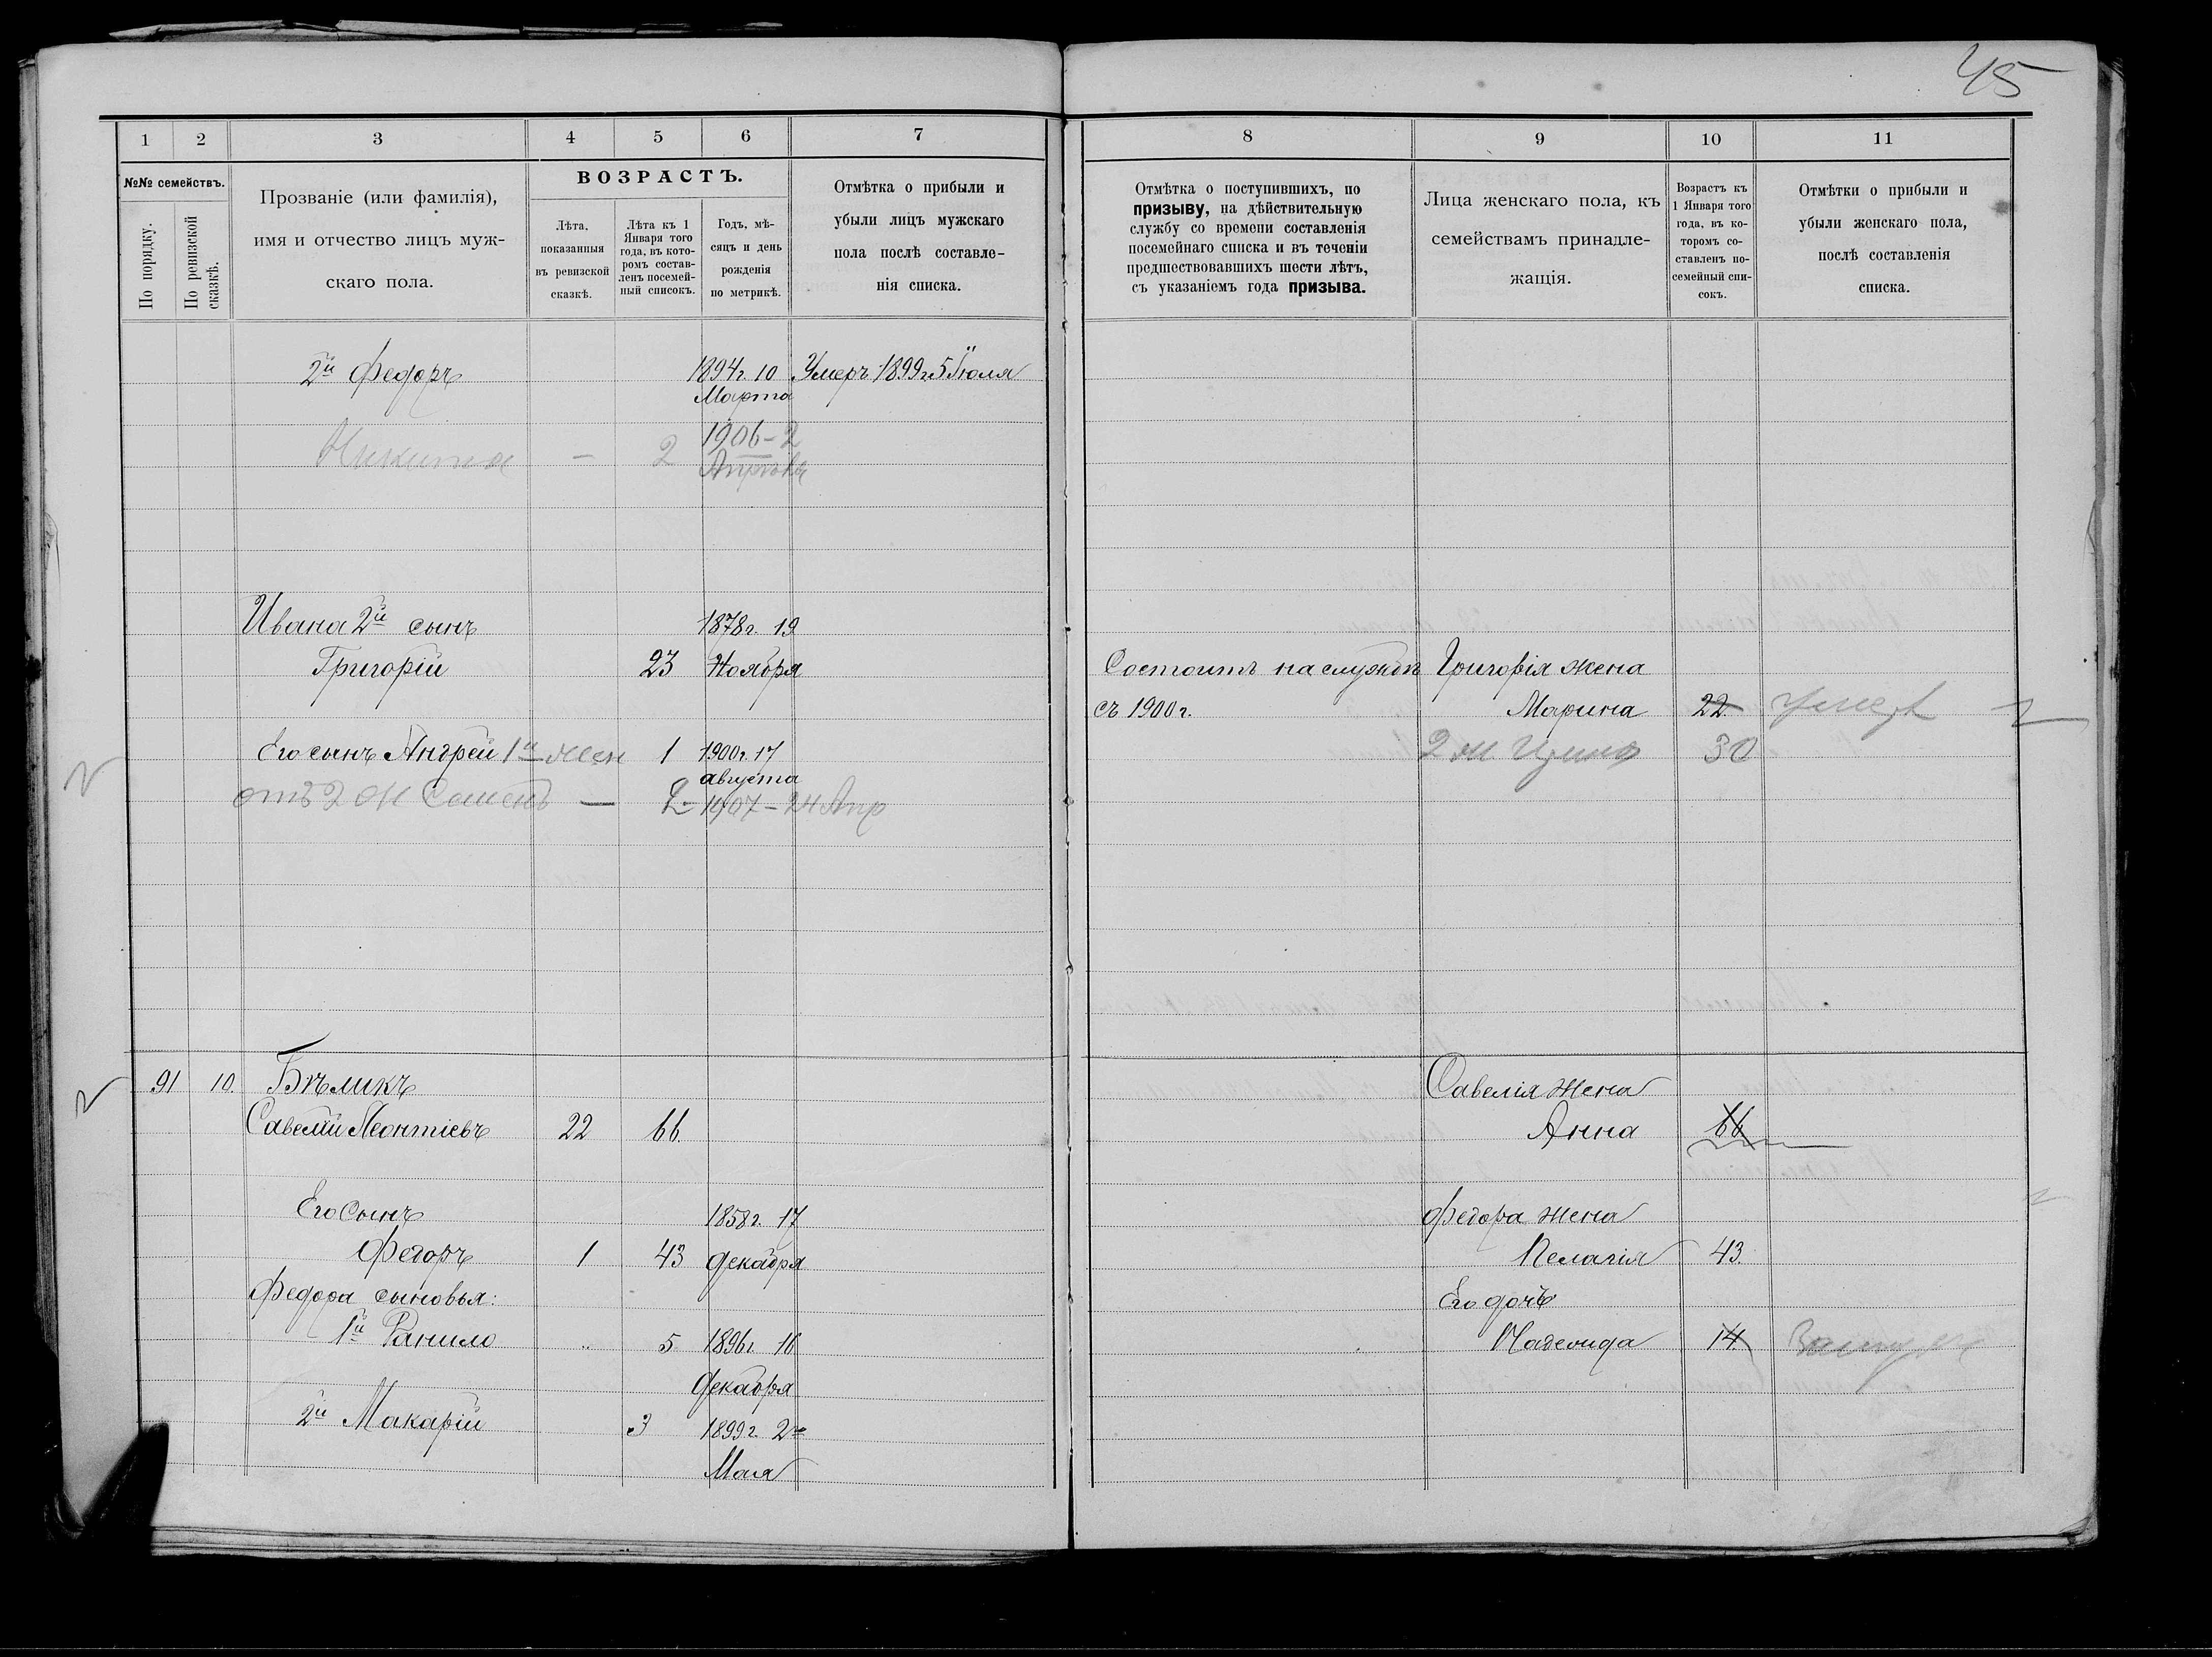 45
1 2 3 4 5 6 7
№№ семействъ.
По порядку.
По ревизской сказкѣ.
Прозваніе (или фамилія),
имя и отчество лицъ муж-
скаго пола.
ВОЗРАСТЪ.
Лѣта,
показанныя
въ ревизской
сказкѣ.
Лѣта къ 1
Января того
года, въ кото-
ромъ состав-
ленъ посемей-
ный списокъ.
Годъ, мѣ-
сяцъ и день
рожденія
по метрикѣ.
Отмѣтка о прибыли и
убыли лицъ мужскаго
пола послѣ составле-
нія списка.
2й Федоръ 1894г. 10 Умеръ 1899г. 5 Іюля
Марта
1906-2
Никита — 2
Апрѣля
Ивана 2й сынъ 1878г. 19
Григорій 23 Ноября
Его сынъ Андрей 1й жен 1 1900г. 17
августа
отъ 2 ж Семенъ — 2 1907-24 Апр
91 10. Бѣликъ
Савелій Леонтіевъ 22 66.
Его Сынъ 1858г. 17
Федоръ 1 43 Декабря
Федора сыновья:
1й Данило „ 5 1896г. 16
Декабря
2й Макарій 3 1899г. 2го
Мая
8 9 10 11
Отмѣтка о поступившихъ, по
призыву, на дѣйствительную
службу со времени составленія
посемейнаго списка и въ теченіи
предшествовавшихъ шести лѣтъ,
съ указаніемъ года призыва.
Лица женскаго пола, къ
семействамъ принадле-
жащія.
Возрастъ къ
1 Января того
года, въ ко-
торомъ со-
ставленъ по-
семейный спи-
сокъ.
Отмѣтки о прибыли и
убыли женскаго пола,
послѣ составленія
списка.
Состоитъ на службѣ Григорія жена
съ 1900г. Марина 22. Умер
2 ж 30
Савелія Жена
Анна 66
Федора жена
Пелагія 43.
Его дочь
14 Замуж